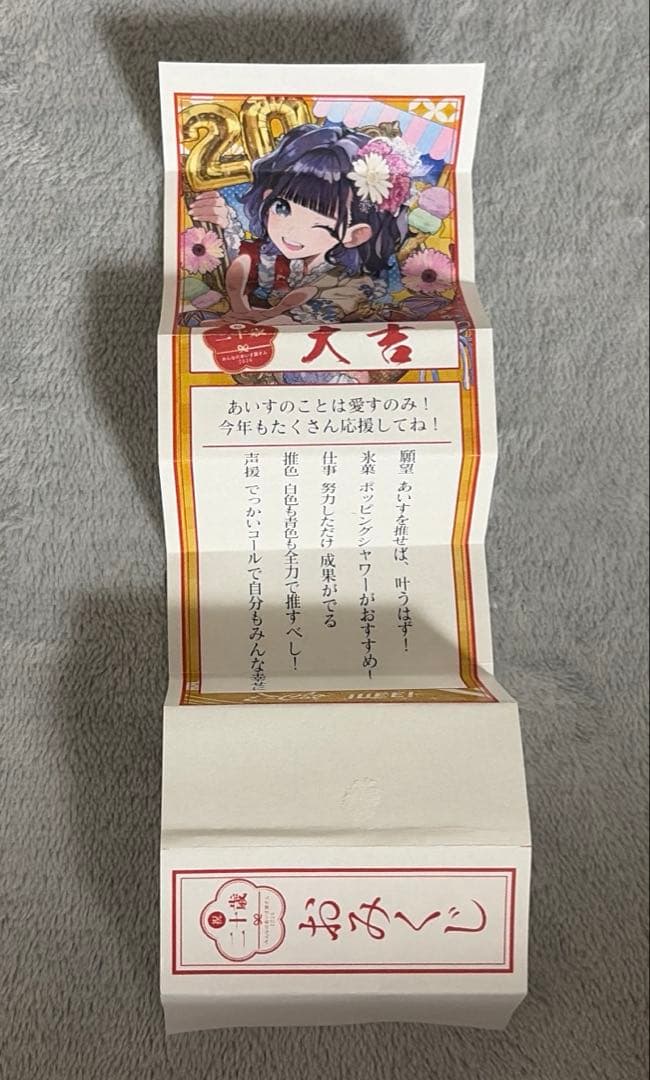 20
二十歳
みんなのあいす屋さん
2026
大吉
あいすのことは愛すのみ！
今年もたくさん応援してね！
願望 あいすを推せば、叶うはず！
氷菓 ポッピングシャワーがおすすめ！
仕事 努力しただけ成果がでる
推色 白色も青色も全力で推すべし！
声援 でっかいコールで自分もみんな幸
祝
二十歳
おみくじ